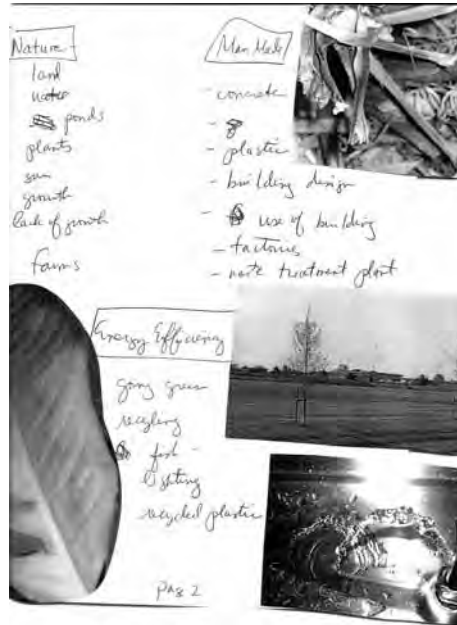 Nature
land
water
ponds
plants
sun
growth
lack of growth
farms
Man Made
- concrete
-
- plastic
- building design
- use of building
- factories
- waste treatment plant
Energy Efficiency
going green
recycling
fish -
lighting
recycled plastic
Pag 2